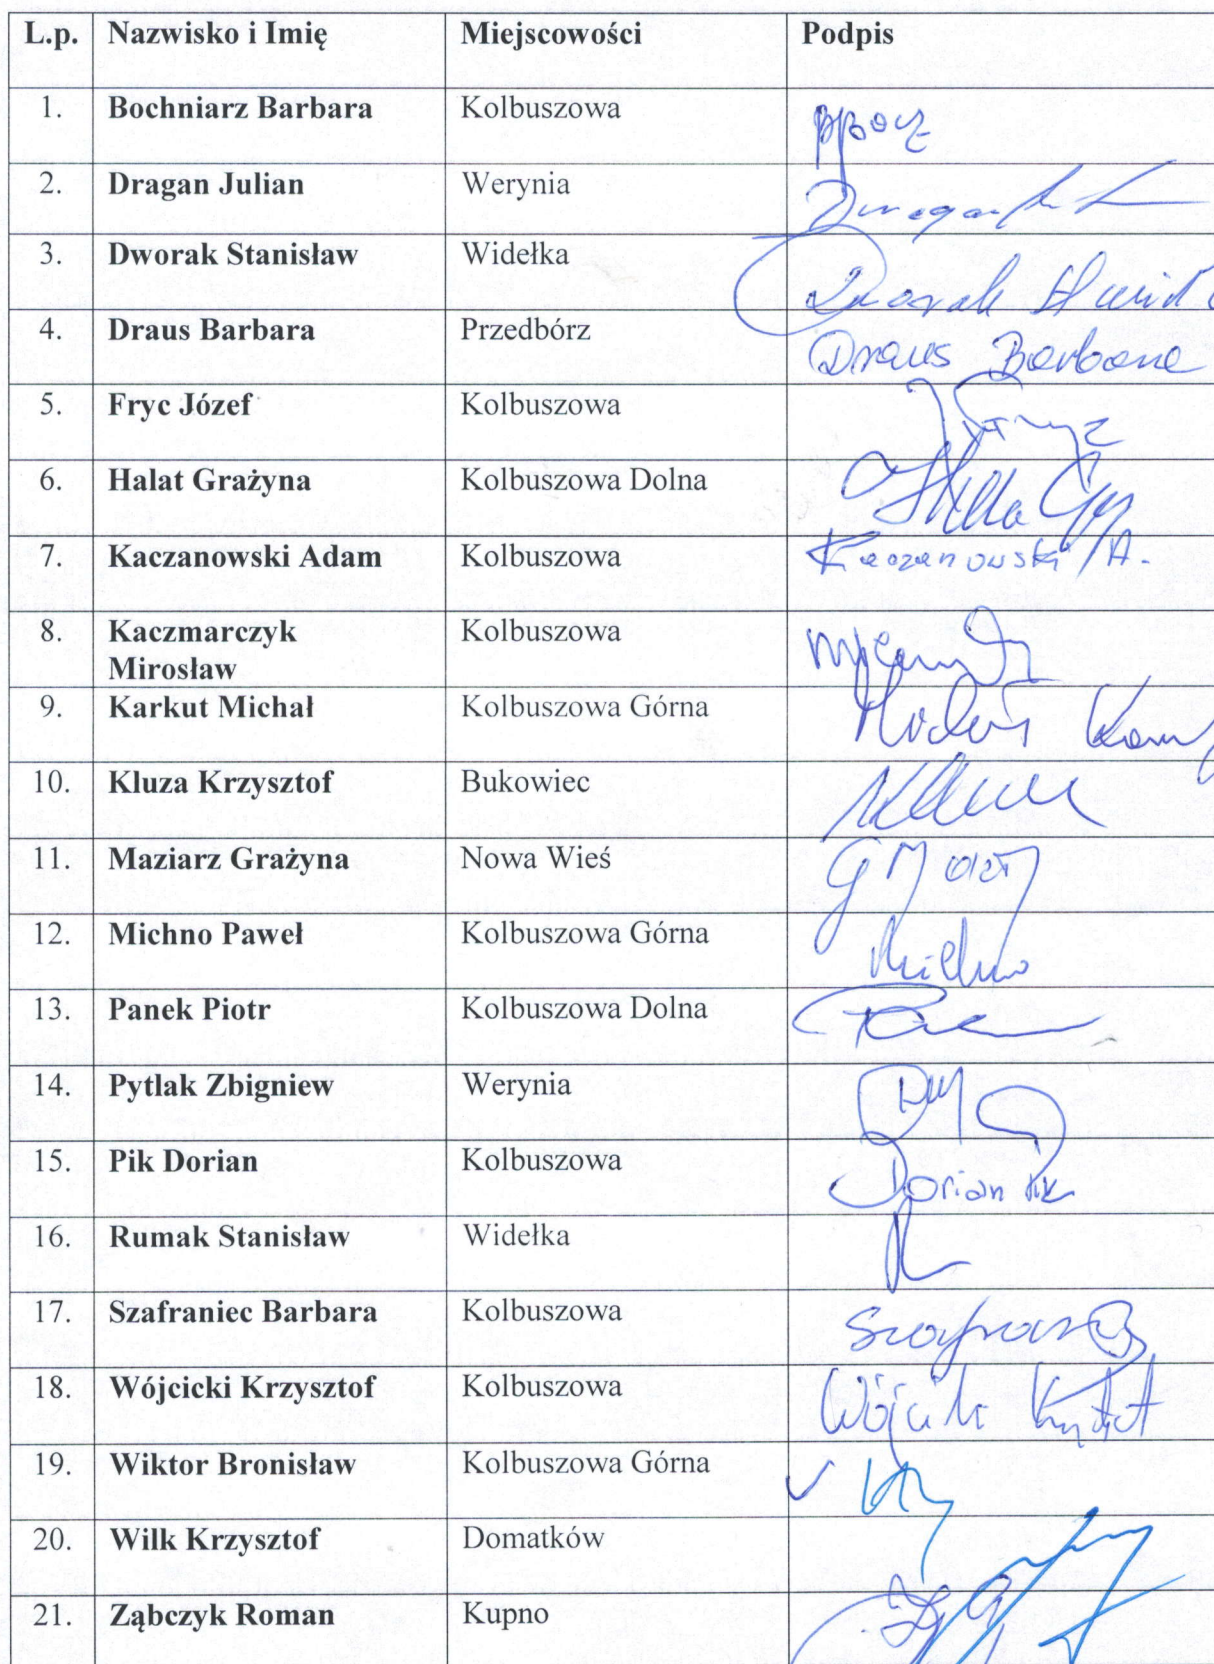 L.p. Nazwisko i Imię Miejscowości Podpis
1. Bochniarz Barbara Kolbuszowa
2. Dragan Julian Werynia Dragan
3. Dworak Stanisław Widełka Dworak
4. Draus Barbara Przedbórz Draus Barbara
5. Fryc Józef Kolbuszowa
6. Halat Grażyna Kolbuszowa Dolna
7. Kaczanowski Adam Kolbuszowa Kaczanowski A.
8. Kaczmarczyk Kolbuszowa
Mirosław
9. Karkut Michał Kolbuszowa Górna
10. Kluza Krzysztof Bukowiec
11. Maziarz Grażyna Nowa Wieś
12. Michno Paweł Kolbuszowa Górna Michno
13. Panek Piotr Kolbuszowa Dolna
14. Pytlak Zbigniew Werynia
15. Pik Dorian Kolbuszowa Dorian Pik
16. Rumak Stanisław Widełka
17. Szafraniec Barbara Kolbuszowa
18. Wójcicki Krzysztof Kolbuszowa
19. Wiktor Bronisław Kolbuszowa Górna
20. Wilk Krzysztof Domatków
21. Ząbczyk Roman Kupno